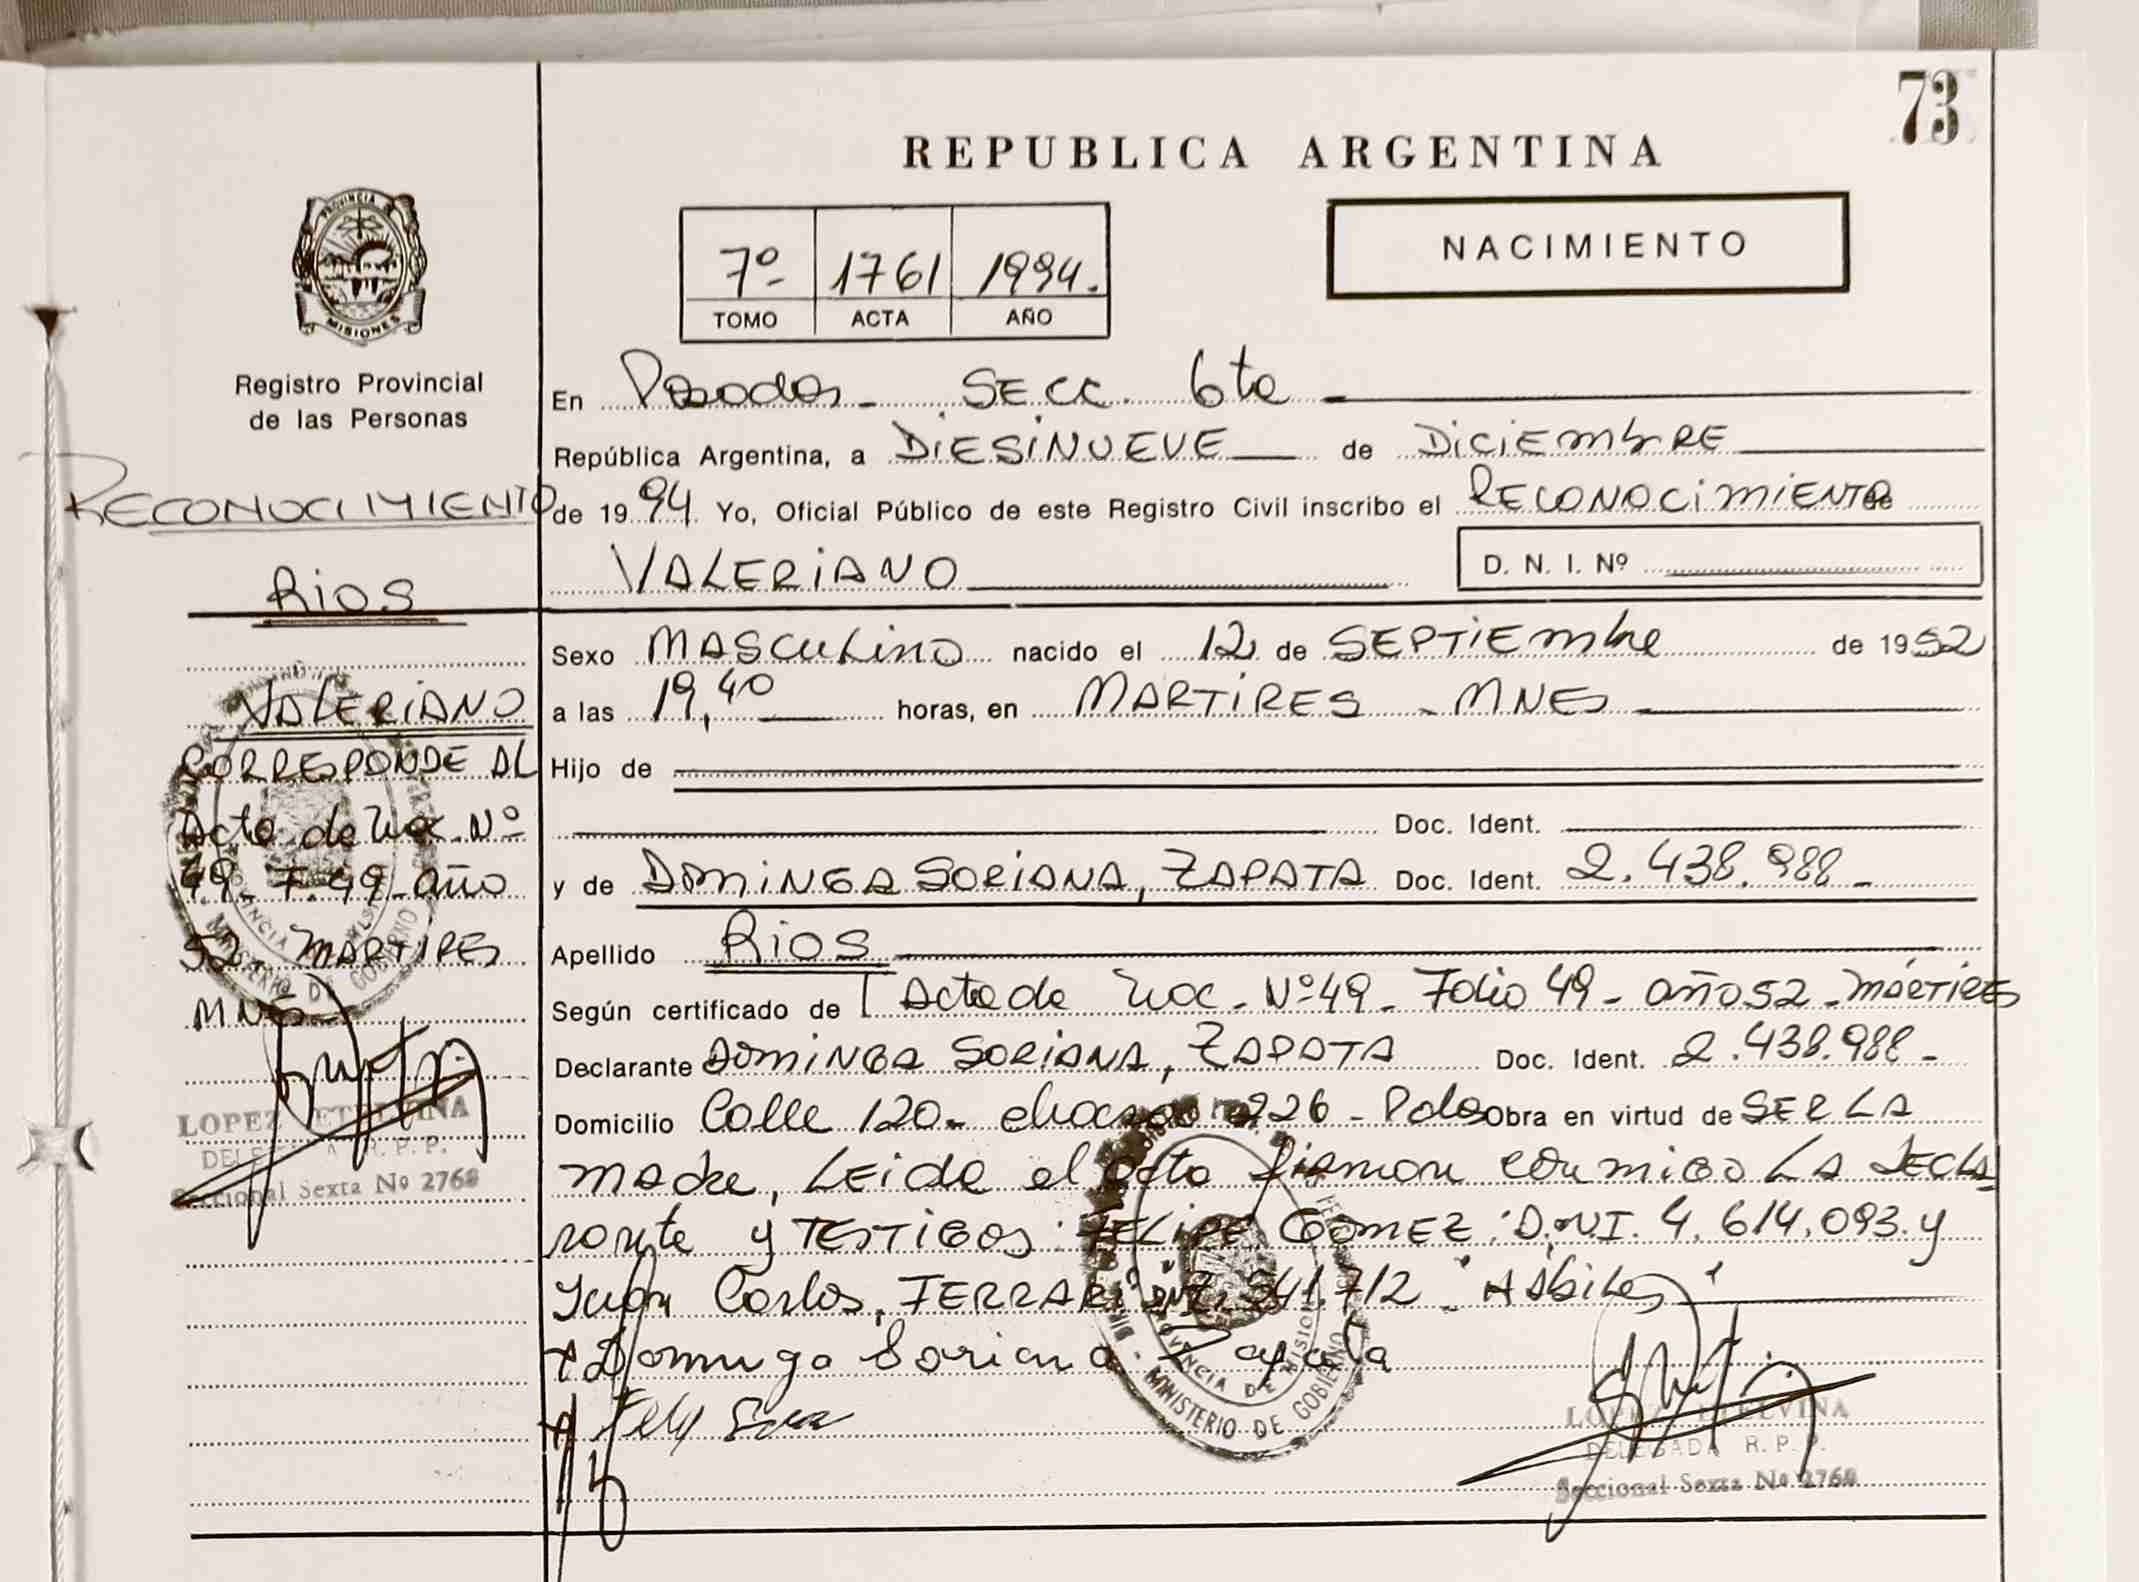 73
REPUBLICA ARGENTINA
PROVINCIA DE
MISIONES
7º 1761 1994.
TOMO ACTA AÑO
NACIMIENTO
Registro Provincial
de las Personas
RECONOCIMIENTO
RIOS
VALERIANO
CORRESPONDE AL
Acta de Nac. Nº
49- F. 49- año
52. MARTIRES
MNES
LOPEZ ETELVINA
DELEGADA R. P. P.
Seccional Sexta Nº 2768
En Posadas - SECC. 6ta
República Argentina, a DIESINUEVE de DICIEMBRE
de 1994 Yo, Oficial Público de este Registro Civil inscribo el RECONOCIMIENTO de
VALERIANO D. N. I. Nº
Sexo MASCULINO nacido el 12 de SEPTIEMBRE de 1952
a las 19,40 horas, en MARTIRES - MNES
Hijo de
Doc. Ident.
y de DOMINGA SORIANA, ZAPATA Doc. Ident. 2.438.988-
Apellido RIOS
Según certificado de Acta de Nac - Nº 49 - Folio 49 - año 52 - MÁRTIRES
Declarante DOMINGA SORIANA, ZAPATA Doc. Ident. 2.438.988-
Domicilio Calle 120- chacra 226 - Pdas Obra en virtud de SER LA
madre, LEIDA el acta firman conmigo LA DECLA
rante y TESTIGOS: FELIPE GOMEZ: D.NI. 4.614.093. y
Juan Carlos, FERRARI 541.712 "HÁbiLes"
Dominga Soriana Zapata
MINISTERIO DE GOBIERNO
PROVINCIA DE MISIONES
LOPEZ ETELVINA
DELEGADA R. P. P.
Seccional Sexta Nº 2768